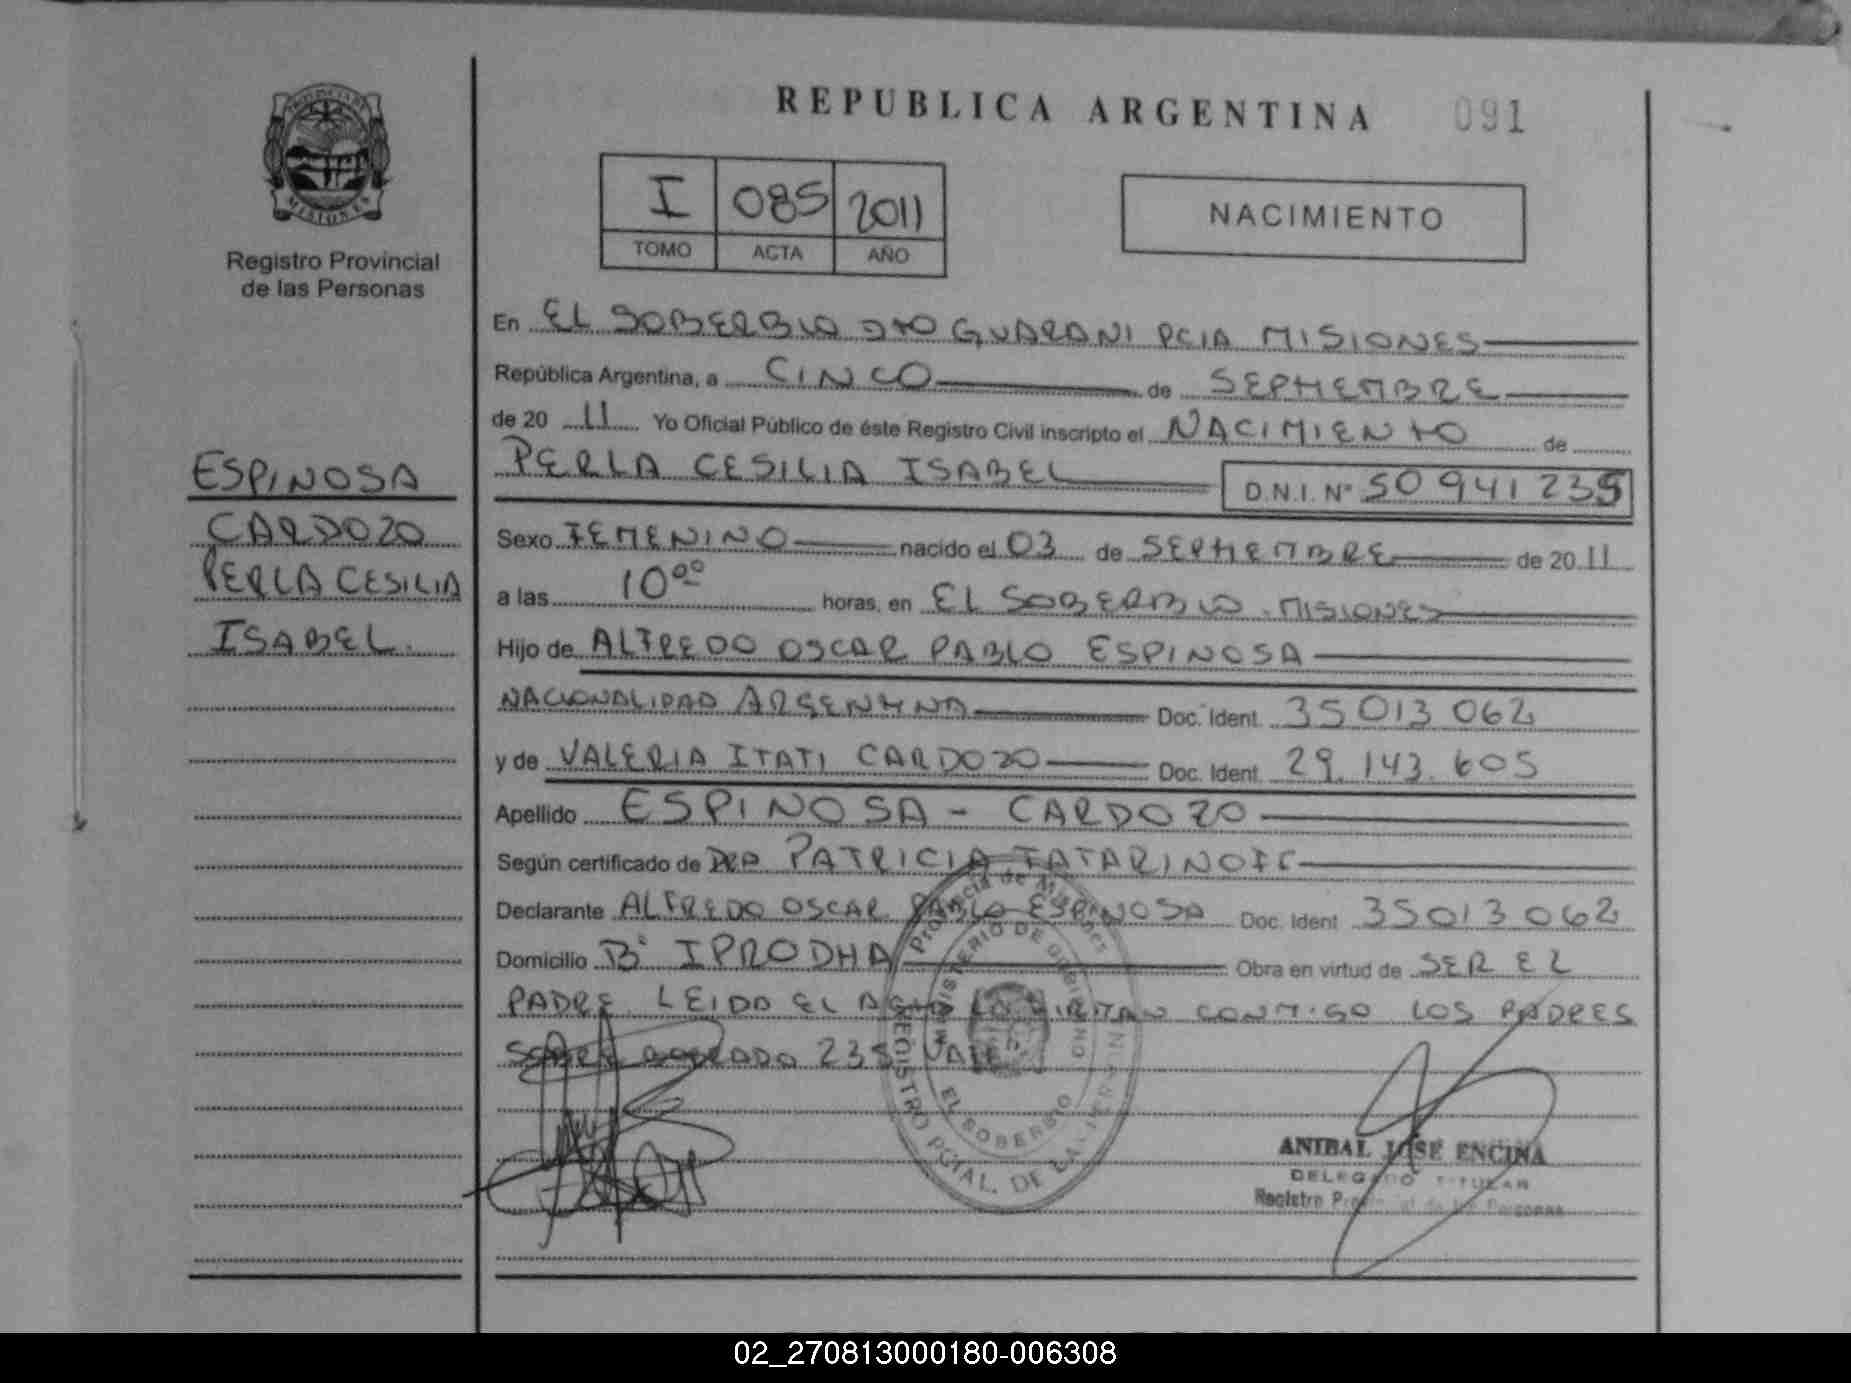 REPUBLICA ARGENTINA 091
PROVINCIA DE
MISIONES
Registro Provincial
de las Personas
I 085 2011
TOMO ACTA AÑO
NACIMIENTO
En EL SOBERBIO DTO GUARANI PCIA MISIONES
República Argentina, a CINCO de SEPTIEMBRE
de 20 11 Yo Oficial Público de éste Registro Civil inscripto el NACIMIENTO de
PERLA CESILIA ISABEL D.N.I. Nº 50 941 235
ESPINOSA
CARDOZO
PERLA CESILIA
ISABEL.
Sexo FEMENINO nacido el 03 de SEPTIEMBRE de 20 11
a las 10⁰⁰ horas, en EL SOBERBIO. MISIONES
Hijo de ALFREDO OSCAR PABLO ESPINOSA
NACIONALIDAD ARGENTINA Doc. Ident. 35 013 062
y de VALERIA ITATI CARDOZO Doc. Ident. 29.143.605
Apellido ESPINOSA - CARDOZO
Según certificado de DRA PATRICIA TATARINOFF
Declarante ALFREDO OSCAR PABLO ESPINOSA Doc. Ident 35013062
Domicilio Bº IPRODHA Obra en virtud de SER EL
PADRE LEIDO EL ACTA LO FIRMAN CONMIGO LOS PADRES
SOBRE BORRADO 235 VALE
Provincia de Misiones
MINISTERIO DE GOBIERNO
EL SOBERBIO
REGISTRO PCIAL. DE LAS PERSONAS
ANIBAL JOSE ENCINA
DELEGADO TITULAR
Registro Provincial de las Personas
02_270813000180-006308